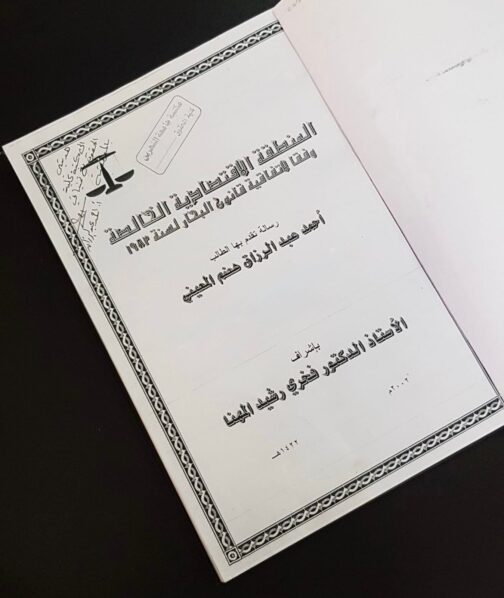 مكتبة جامعة النهرين
كلية الحقوق
المنطقة الاقتصادية الخالصة
وفقا لاتفاقية قانون البحار لسنة ١٩٨٢
رسالة تقدم بها الطالب
أحمد عبد الرزاق هضم المعيني
بإشراف
الأستاذ الدكتور فخري رشيد المهنا
٢٠٠٢م
١٤٢٢هـ